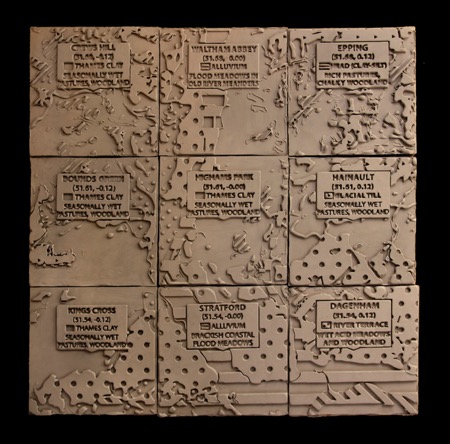 CREWS HILL
(51.68, -0.12)
THAMES CLAY
SEASONALLY WET
PASTURES, WOODLAND
WALTHAM ABBEY
(51.68, -0.00)
ALLUVIUM
FLOOD MEADOWS IN
OLD RIVER MEANDERS
EPPING
(51.68, 0.12)
HEAD (CLAY-SILT)
RICH PASTURES,
CHALKY WOODLAND
BOUNDS GREEN
(51.61, -0.12)
THAMES CLAY
SEASONALLY WET
PASTURES, WOODLAND
HIGHAMS PARK
(51.61, -0.00)
THAMES CLAY
SEASONALLY WET
PASTURES, WOODLAND
HAINAULT
(51.61, 0.12)
GLACIAL TILL
SEASONALLY WET
PASTURES, WOODLAND
KINGS CROSS
(51.54, -0.12)
THAMES CLAY
SEASONALLY WET
PASTURES, WOODLAND
STRATFORD
(51.54, -0.00)
ALLUVIUM
BRACKISH COASTAL
FLOOD MEADOWS
DAGENHAM
(51.54, 0.12)
RIVER TERRACE
WET ACID MEADOWS
AND WOODLAND